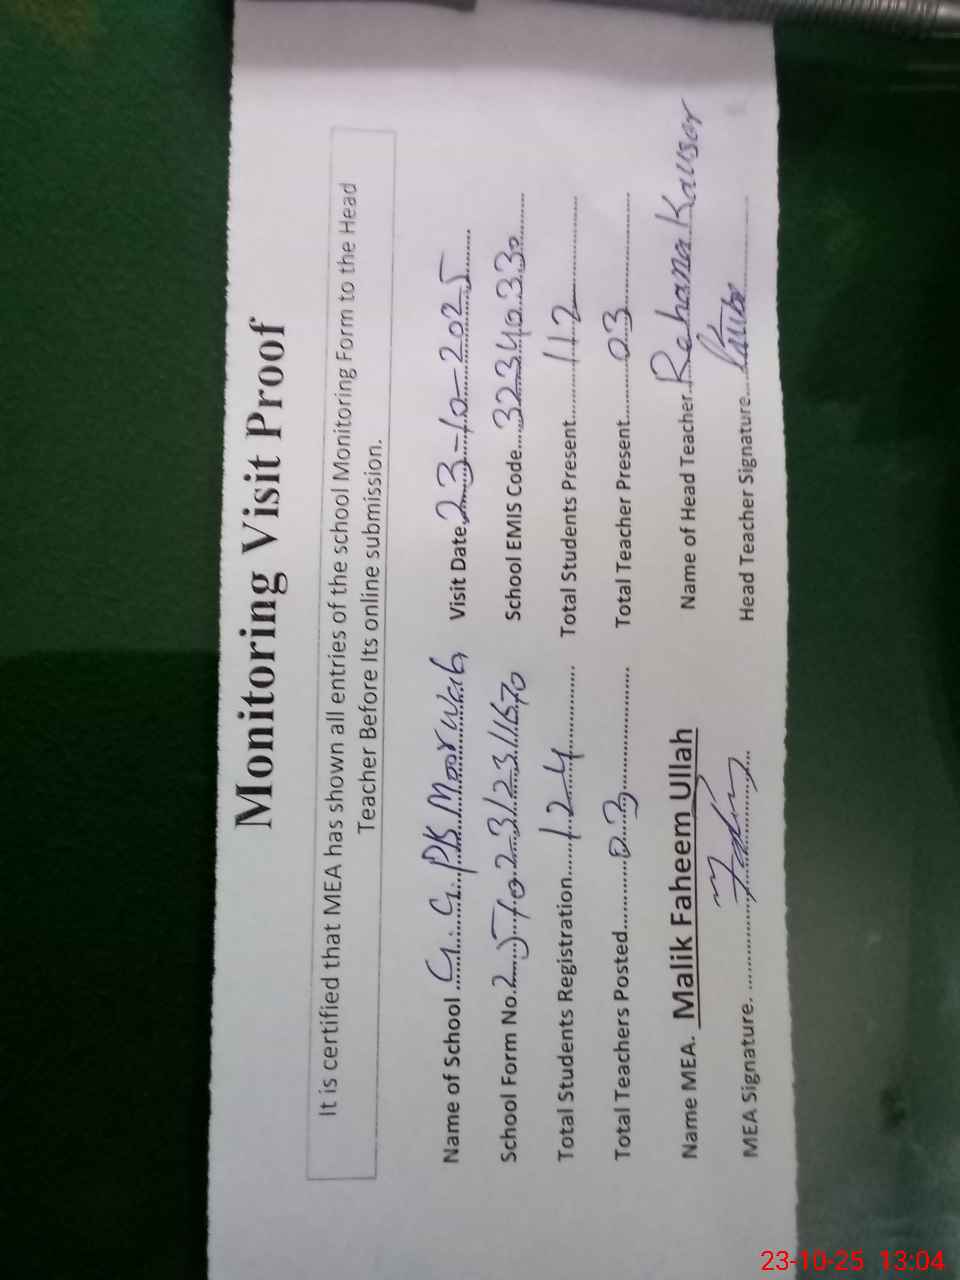 Monitoring Visit Proof
It is certified that MEA has shown all entries of the school Monitoring Form to the Head
Teacher Before Its online submission.
Name of School G.G.PS Moor Wah Visit Date 23-10-2025
School Form No. 25102312311570 School EMIS Code 32340330
Total Students Registration 124 Total Students Present 112
Total Teachers Posted 03 Total Teacher Present 03
Name MEA. Malik Faheem Ullah Name of Head Teacher Rehana Kausar
MEA Signature. Head Teacher Signature
23-10-25 13:04